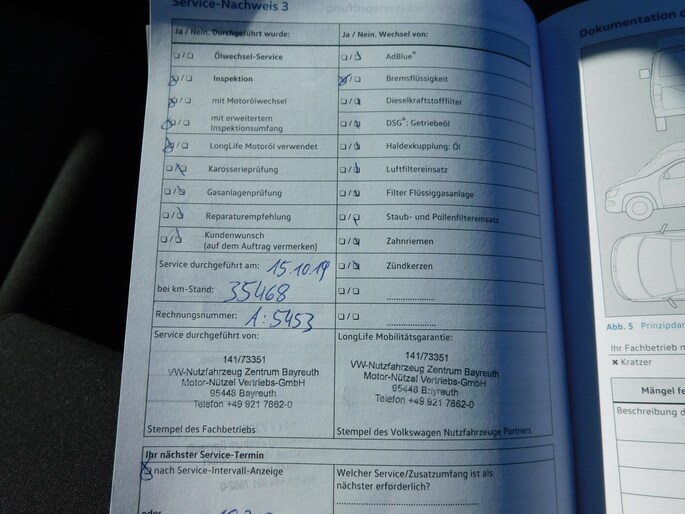 Service-Nachweis 3
Ja / Nein. Durchgeführt wurde:
Ölwechsel-Service
Inspektion
mit Motorölwechsel
mit erweitertem
Inspektionsumfang
LongLife Motoröl verwendet
Karosserieprüfung
Gasanlagenprüfung
Reparaturempfehlung
Kundenwunsch
(auf dem Auftrag vermerken)
Service durchgeführt am: 15.10.19
bei km-Stand: 35468
Rechnungsnummer: A:5453
Service durchgeführt von:
141/73351
VW-Nutzfahrzeug Zentrum Bayreuth
Motor-Nützel Vertriebs-GmbH
95448 Bayreuth
Telefon +49 921 7862-0
Stempel des Fachbetriebs
Ja / Nein. Wechsel von:
AdBlue®
Bremsflüssigkeit
Dieselkraftstofffilter
DSG®: Getriebeöl
Haldexkupplung: Öl
Luftfiltereinsatz
Filter Flüssiggasanlage
Staub- und Pollenfiltereinsatz
Zahnriemen
Zündkerzen
LongLife Mobilitätsgarantie:
141/73351
VW-Nutzfahrzeug Zentrum Bayreuth
Motor-Nützel Vertriebs-GmbH
95448 Bayreuth
Telefon +49 921 7862-0
Stempel des Volkswagen Nutzfahrzeuge Partners
Ihr nächster Service-Termin
nach Service-Intervall-Anzeige
oder
Welcher Service/Zusatzumfang ist als
nächster erforderlich?
Dokumentation
Abb. 5
Ihr Fachbetrieb
× Kratzer
Mängel
Beschreibung